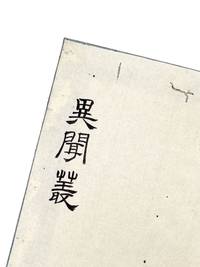 異聞叢